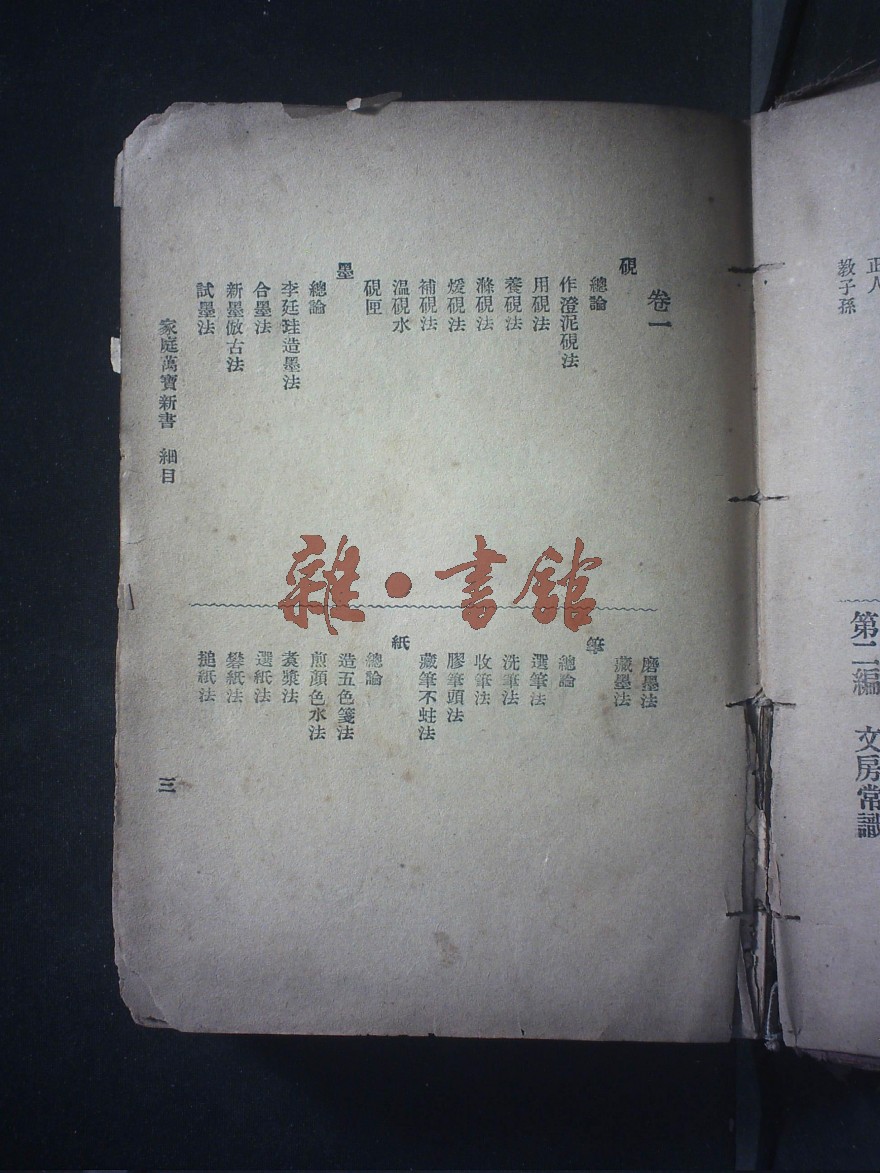 正人
教子孫
第二編　文房常識
卷一
硯
總論
作澄泥硯法
用硯法
養硯法
滌硯法
煖硯法
補硯法
溫硯水
硯匣
墨
總論
李廷珪造墨法
合墨法
新墨倣古法
試墨法
磨墨法
藏墨法
筆
總論
選筆法
洗筆法
收筆法
膠筆頭法
藏筆不蛀法
紙
總論
造五色箋法
煎顏色水法
煮漿法
選紙法
礬紙法
搥紙法
家庭萬寶新書　細目
三
雜·書館